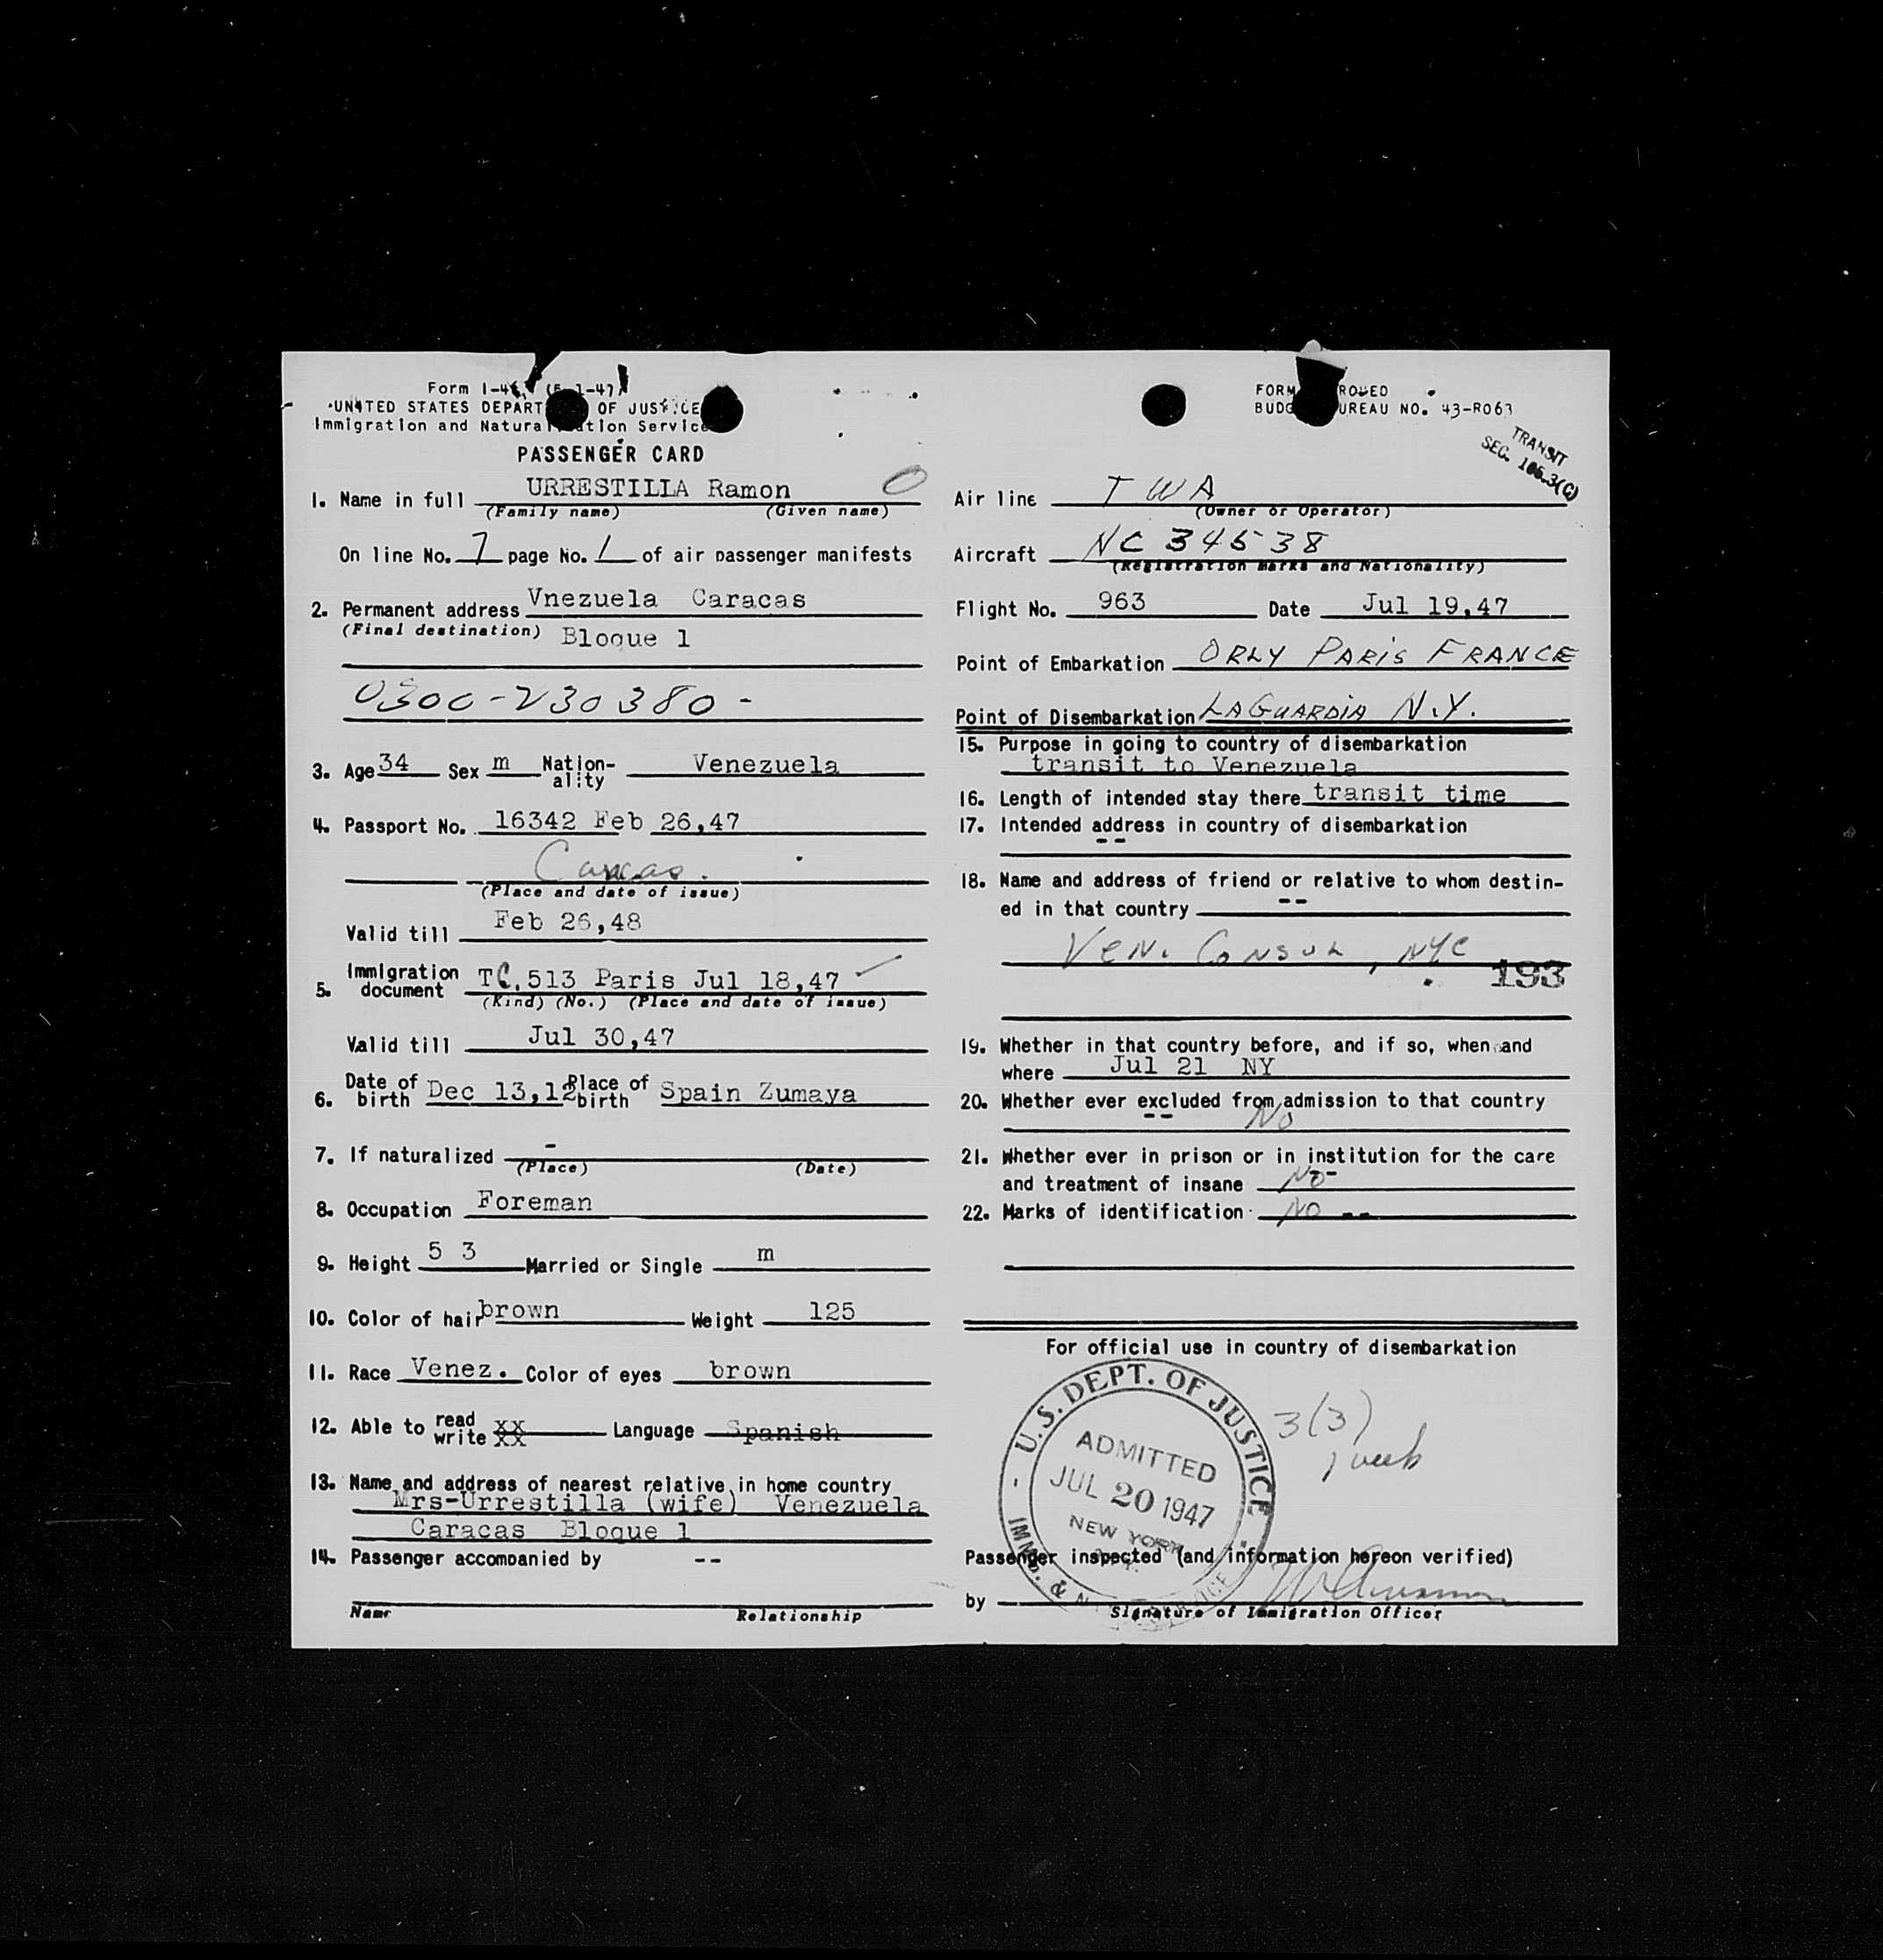 Form I-46 (5-1-47)
UNITED STATES DEPART OF JUSTICE
Immigration and Natura ation Service
PASSENGER CARD
1. Name in full URRESTILLA Ramon
(Family name) (Given name)
On line No. 7 page No. 1 of air passenger manifests
2. Permanent address Vnezuela Caracas
(Final destination) Bloque 1
0300-V30380-
3. Age 34 Sex m Nation-ality Venezuela
4. Passport No. 16342 Feb 26,47
Caracas.
(Place and date of issue)
Valid till Feb 26,48
5. Immigration document TC.513 Paris Jul 18,47
(Kind) (No.) (Place and date of issue)
Valid till Jul 30,47
6. Date of birth Dec 13,12 Place of birth Spain Zumaya
7. If naturalized -
(Place) (Date)
8. Occupation Foreman
9. Height 5 3 Married or Single m
10. Color of hair brown Weight 125
11. Race Venez. Color of eyes brown
12. Able to read xx write xx Language Spanish
13. Name and address of nearest relative in home country
Mrs-Urrestilla (wife) Venezuela
Caracas Bloque 1
14. Passenger accompanied by --
Name Relationship
FORM ROVED
BUDG UREAU NO. 43-R063
TRANSIT
SEC. 105.3(C)
Air line TWA
(Owner or Operator)
Aircraft NC 34538
(Registration Marks and Nationality)
Flight No. 963 Date Jul 19,47
Point of Embarkation ORLY PARIS FRANCE
Point of Disembarkation LAGUARDIA N.Y.
15. Purpose in going to country of disembarkation
transit to Venezuela
16. Length of intended stay there transit time
17. Intended address in country of disembarkation
--
18. Name and address of friend or relative to whom destin-
ed in that country --
VEN. CONSUL, NYC
193
19. Whether in that country before, and if so, when and
where Jul 21 NY
20. Whether ever excluded from admission to that country
-- No
21. Whether ever in prison or in institution for the care
and treatment of insane No-
22. Marks of identification NO --
For official use in country of disembarkation
U.S. DEPT. OF JUSTICE
ADMITTED
JUL 20 1947
NEW YORK
IMM. & N SERVICE
3(3)
1 week
Passenger inspected (and information hereon verified)
by
Signature of Immigration Officer